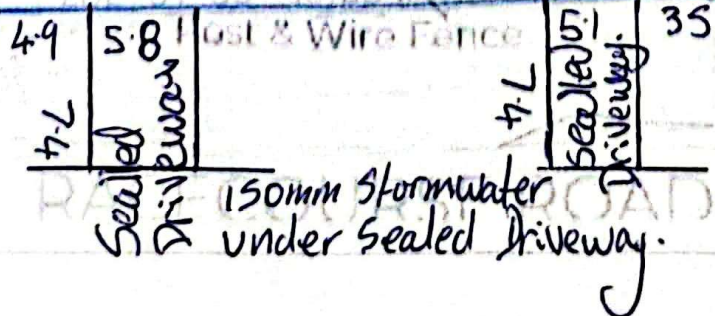 4.9 5.8 Post & Wire Fence 5.1 35
7.4 Sealed Driveway 7.4 Sealed Driveway.
150mm Stormwater ROAD
under Sealed Driveway.